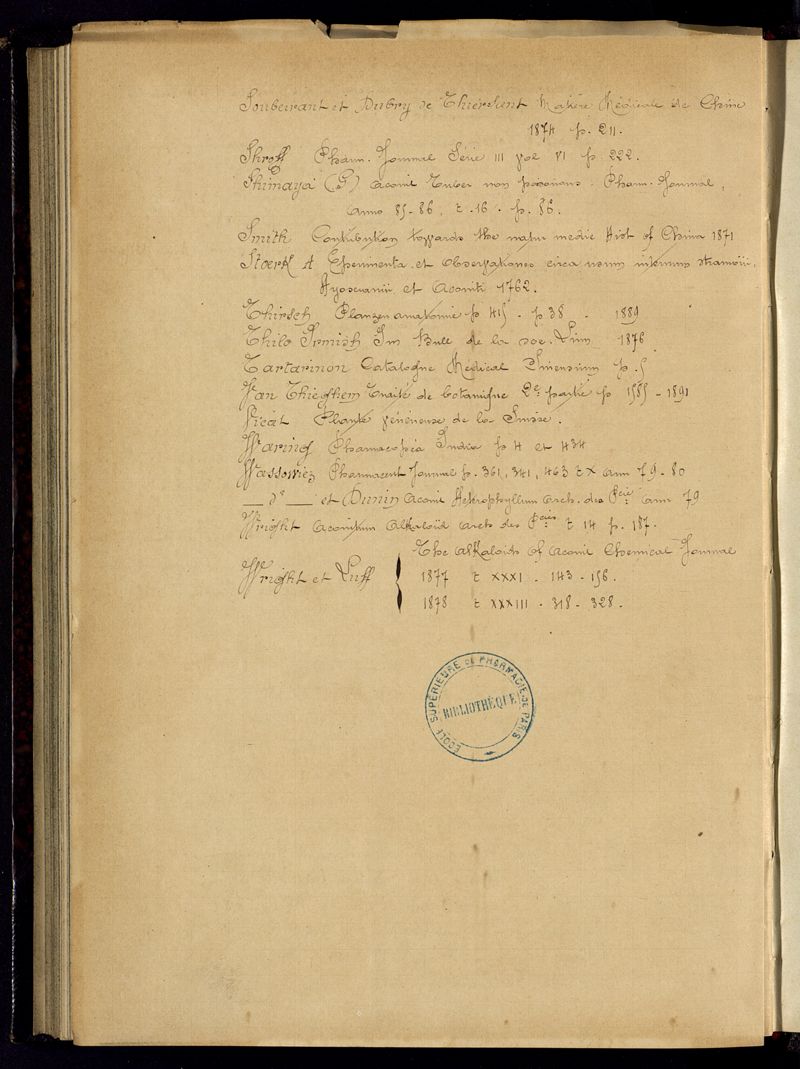 Soubeirant et Dubry de Thiersent Matière Médicale de Chine
1874 p. 211.
Shroff Pharm. Journal Série III vol VI p. 222.
Shimaya (P) Aconit Tuber von Japonans. Pharm. Journal,
anno 85-86, t. 16. p. 86.
Smith Contribution towards the natur medic Hist of China 1871
Stoerk A Eperimenta et observationes circa usum internum stramonii,
Hyosciamii et Aconiti 1762.
Thirsch Planzen anatomie p 415. p. 38. 1889
Thilo Irmish In Bull de la soc. Linn 1876
Tartarinon Catalogne Médical Sinensium p. 5
Van Thieghem Traité de botanique 2e partie p 1585-1891
Vicat Plante vénéneuse de la Suisse.
Waring Pharmacopia India p 4 et 434
Wassowiez Pharmaceut Journal p. 361, 341, 463 t X ann 79-80
__ do __ et Dunin Aconit Heterophyllum arch. des Pcie ann 79
Wright Aconitum Alkaloïd arch des Pcien t 14 p. 187.
The alkaloids of aconit Chemical Journal
Wright et Luff { 1877 t XXXI. 143-156.
1878 t XXXIII. 318-328.
ÉCOLE SUPÉRIEURE DE PHARMACIE DE PARIS
BIBLIOTHÈQUE